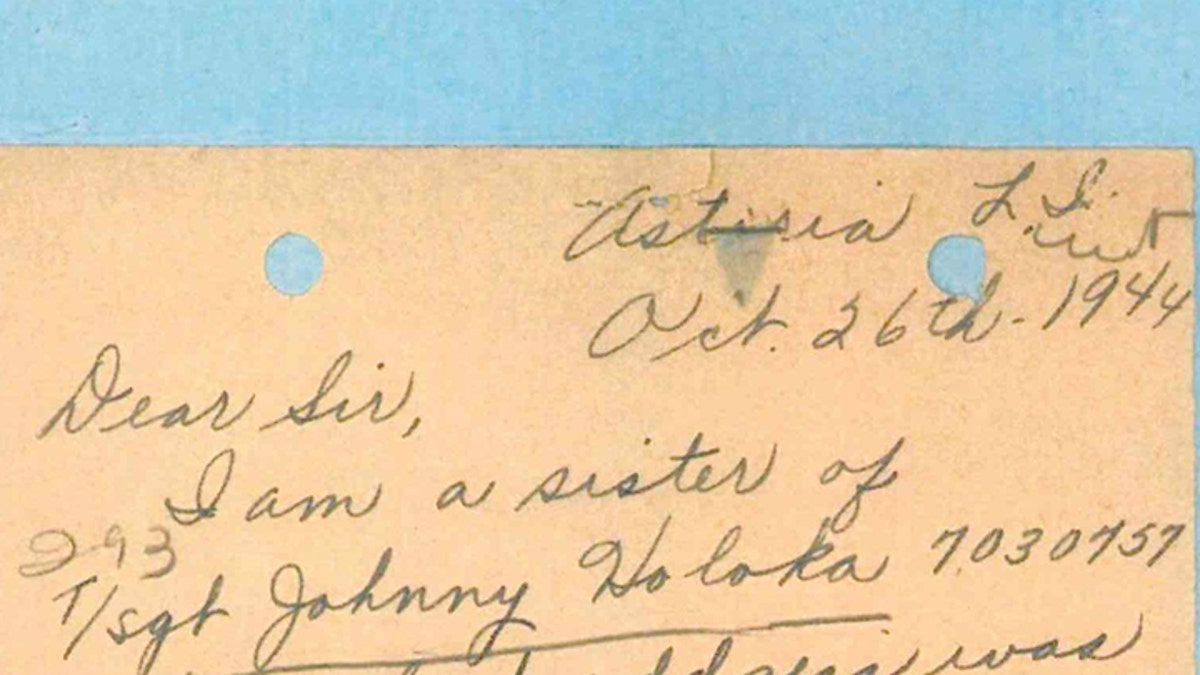 Astoria L.I.
Oct. 26th - 1944
Dear Sir,
I am a sister of
293
T/sgt Johnny Holoka 7030757
address was